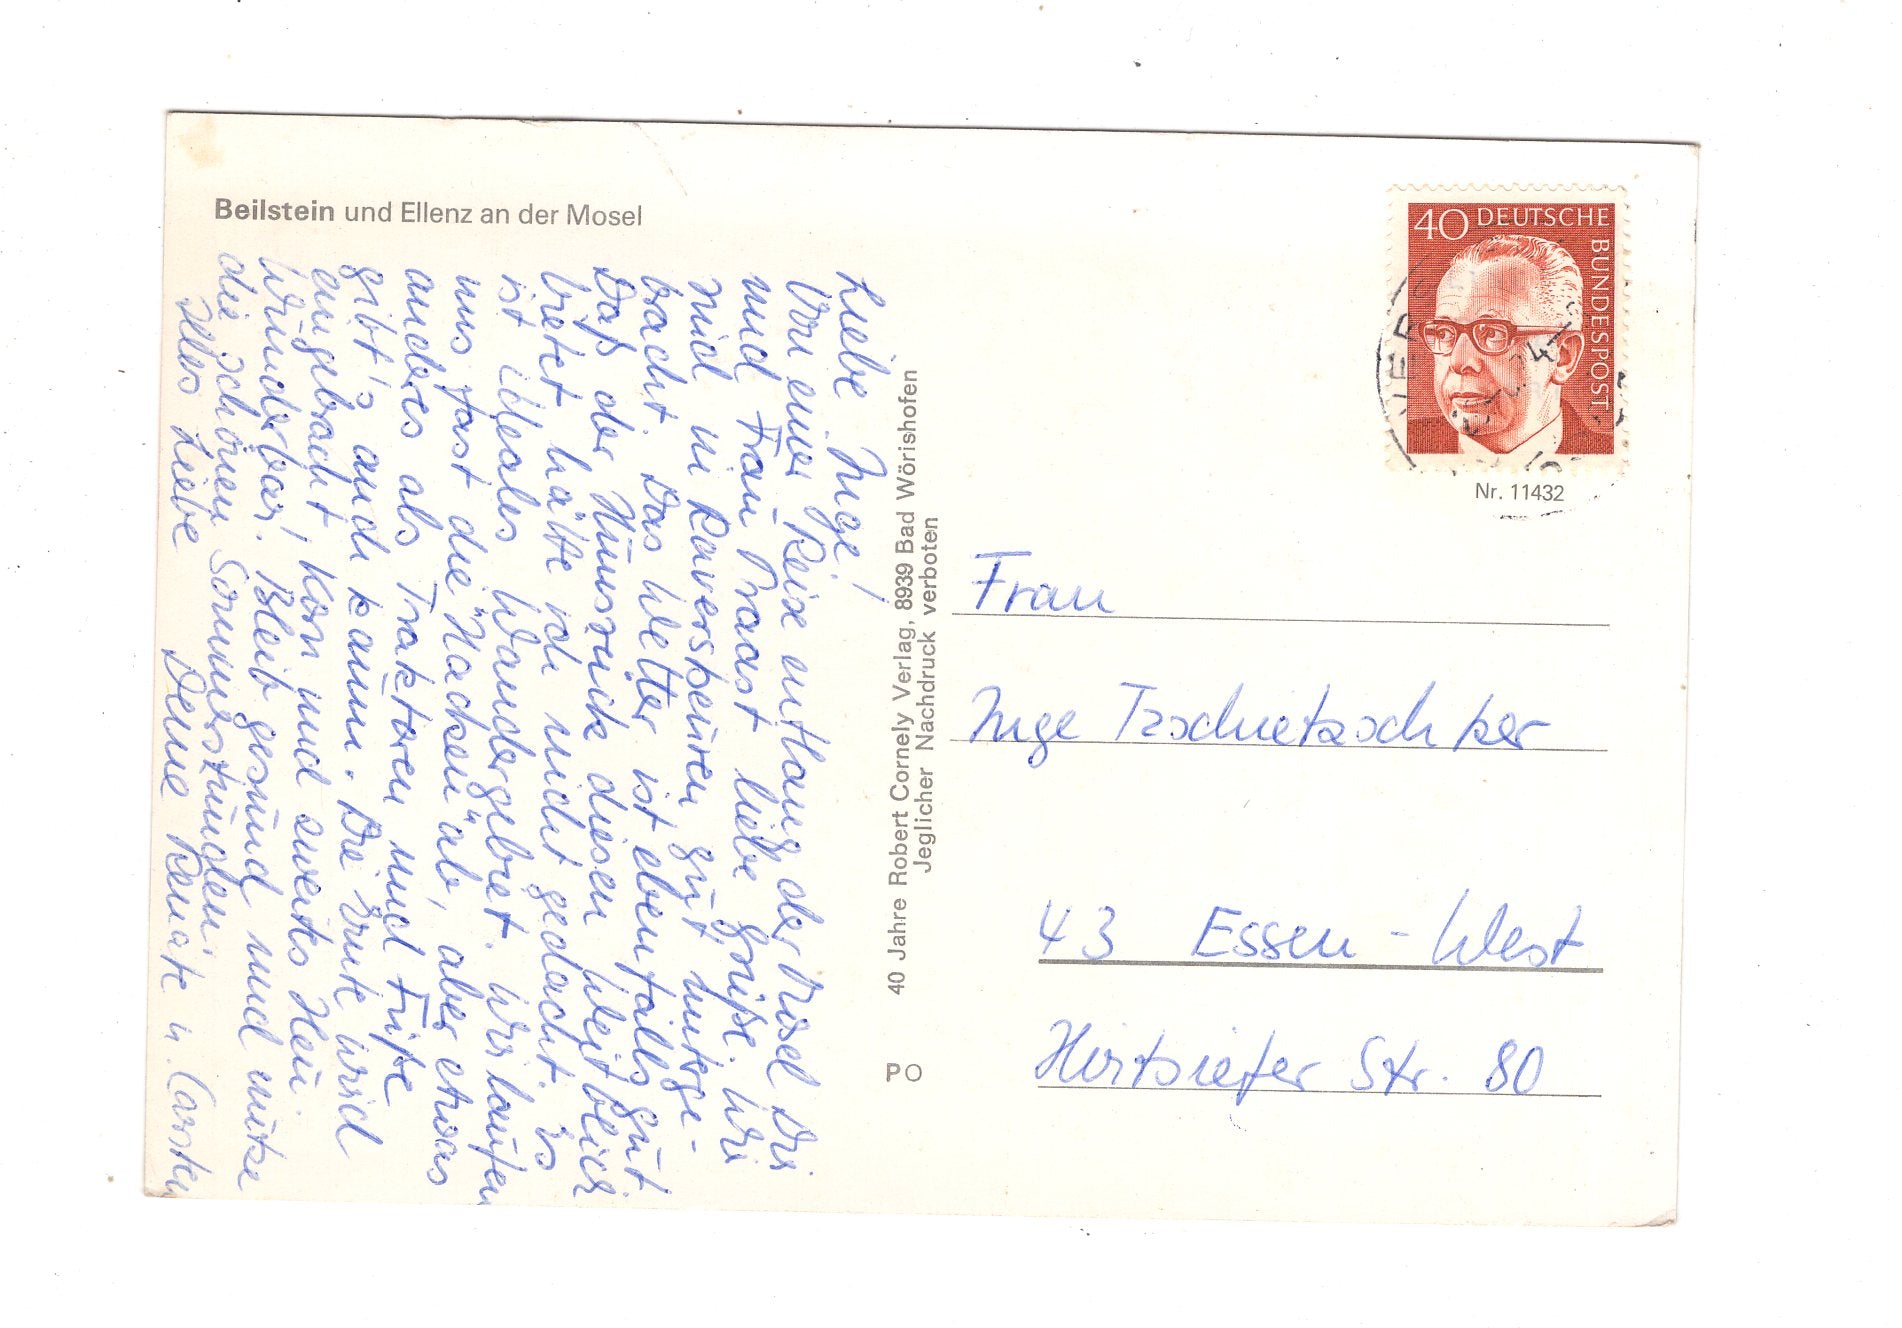 Beilstein und Ellenz an der Mosel
Liebe Inge!
Von einer Reise entlang der Mosel Dir
und Frau Praast liebe Grüße. Wir
sind in Raversbeuren gut unterge-
bracht. Das Wetter ist ebenfalls gut
Daß der Hunsrück diesen Weitblick
bietet hätte ich nicht gedacht. Es
ist ideales Wandergebiet. Wir laufen
uns fast die "Hacken" ab, aber etwas
anderes als Traktoren und Füße
gibt's auch kaum. Die Ernte wird
eingebracht, Korn und Heu.
Wunderbar! Bleib gesund und nutze
die schönen Sommerstunden.
Alles Liebe Deine Renate u. Carsten
40 Jahre Robert Cornely Verlag, 8939 Bad Wörishofen
Jeglicher Nachdruck verboten
PO
40 DEUTSCHE
BUNDESPOST
Nr. 11432
Frau
Inge Tzschietzschker
43 Essen - West
Hirtsiefer Str. 80